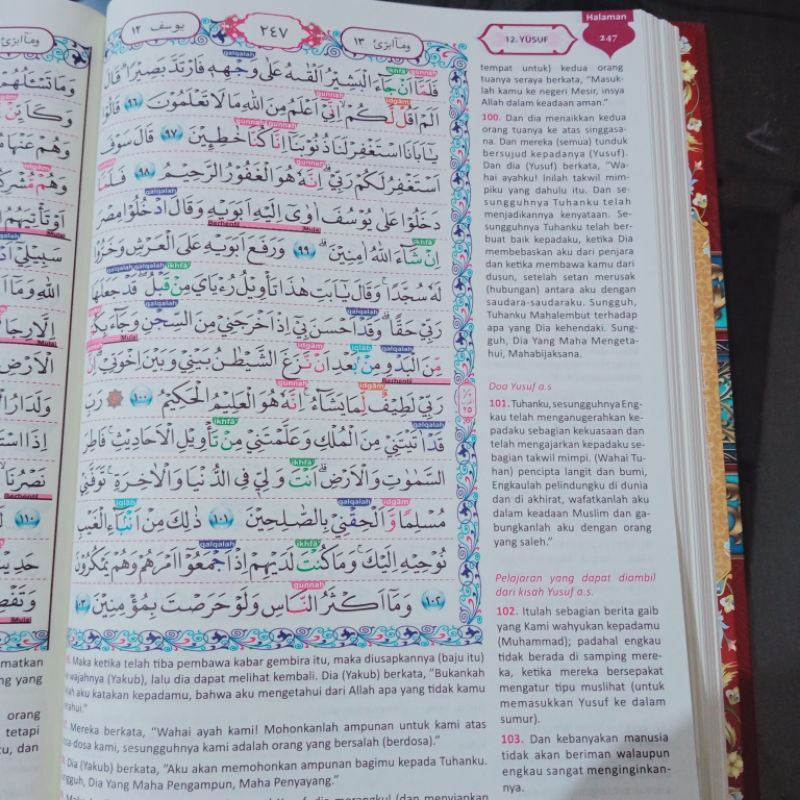 وما ابرئ ١٣
٢٤٧
يوسف ١٢
فَلَمَّآ اَنْ جَاۤءَ الْبَشِيْرُ اَلْقٰىهُ عَلٰى وَجْهِهٖ فَارْتَدَّ بَصِيْرًاۗ قَالَ
اَلَمْ اَقُلْ لَّكُمْ اِنِّيْٓ اَعْلَمُ مِنَ اللّٰهِ مَا لَا تَعْلَمُوْنَ ٩٦ قَالُوْا
يٰٓاَبَانَا اسْتَغْفِرْ لَنَا ذُنُوْبَنَآ اِنَّا كُنَّا خٰطِـِٕيْنَ ٩٧ قَالَ سَوْفَ
اَسْتَغْفِرُ لَكُمْ رَبِّيْۗ اِنَّهٗ هُوَ الْغَفُوْرُ الرَّحِيْمُ ٩٨ فَلَمَّا
دَخَلُوْا عَلٰى يُوْسُفَ اٰوٰٓى اِلَيْهِ اَبَوَيْهِ وَقَالَ ادْخُلُوْا مِصْرَ
اِنْ شَاۤءَ اللّٰهُ اٰمِنِيْنَۗ ٩٩ وَرَفَعَ اَبَوَيْهِ عَلَى الْعَرْشِ وَخَرُّوْا
لَهٗ سُجَّدًاۚ وَقَالَ يٰٓاَبَتِ هٰذَا تَأْوِيْلُ رُءْيَايَ مِنْ قَبْلُ قَدْ جَعَلَهَا
رَبِّيْ حَقًّاۗ وَقَدْ اَحْسَنَ بِيْٓ اِذْ اَخْرَجَنِيْ مِنَ السِّجْنِ وَجَاۤءَ بِكُمْ
مِّنَ الْبَدْوِ مِنْۢ بَعْدِ اَنْ نَّزَغَ الشَّيْطٰنُ بَيْنِيْ وَبَيْنَ اِخْوَتِيْۗ اِنَّ
رَبِّيْ لَطِيْفٌ لِّمَا يَشَاۤءُۗ اِنَّهٗ هُوَ الْعَلِيْمُ الْحَكِيْمُ ١٠٠ رَبِّ
قَدْ اٰتَيْتَنِيْ مِنَ الْمُلْكِ وَعَلَّمْتَنِيْ مِنْ تَأْوِيْلِ الْاَحَادِيْثِۚ فَاطِرَ
السَّمٰوٰتِ وَالْاَرْضِۗ اَنْتَ وَلِيّٖ فِى الدُّنْيَا وَالْاٰخِرَةِۚ تَوَفَّنِيْ
مُسْلِمًا وَّاَلْحِقْنِيْ بِالصّٰلِحِيْنَ ١٠١ ذٰلِكَ مِنْ اَنْۢبَاۤءِ الْغَيْبِ
نُوْحِيْهِ اِلَيْكَۚ وَمَا كُنْتَ لَدَيْهِمْ اِذْ اَجْمَعُوْٓا اَمْرَهُمْ وَهُمْ يَمْكُرُوْنَ
١٠٢ وَمَآ اَكْثَرُ النَّاسِ وَلَوْ حَرَصْتَ بِمُؤْمِنِيْنَ ١٠٣
12. YŪSUF
Halaman
247
tempat untuk) kedua orang
tuanya seraya berkata, “Masuk-
lah kamu ke negeri Mesir, insya
Allah dalam keadaan aman.”
100. Dan dia menaikkan kedua
orang tuanya ke atas singgasa-
na. Dan mereka (semua) tunduk
bersujud kepadanya (Yusuf).
Dan dia (Yusuf) berkata, “Wa-
hai ayahku! Inilah takwil mim-
piku yang dahulu itu. Dan se-
sungguhnya Tuhanku telah
menjadikannya kenyataan. Se-
sungguhnya Tuhanku telah ber-
buat baik kepadaku, ketika Dia
membebaskan aku dari penjara
dan ketika membawa kamu dari
dusun, setelah setan merusak
(hubungan) antara aku dengan
saudara-saudaraku. Sungguh,
Tuhanku Mahalembut terhadap
apa yang Dia kehendaki. Sung-
guh, Dia Yang Maha Mengeta-
hui, Mahabijaksana.
Doa Yusuf a.s
101. Tuhanku, sesungguhnya Eng-
kau telah menganugerahkan ke-
padaku sebagian kekuasaan dan
telah mengajarkan kepadaku se-
bagian takwil mimpi. (Wahai Tu-
han) pencipta langit dan bumi,
Engkaulah pelindungku di dunia
dan di akhirat, wafatkanlah aku
dalam keadaan Muslim dan ga-
bungkanlah aku dengan orang
yang saleh.”
Pelajaran yang dapat diambil
dari kisah Yusuf a.s.
102. Itulah sebagian berita gaib
yang Kami wahyukan kepadamu
(Muhammad); padahal engkau
tidak berada di samping mere-
ka, ketika mereka bersepakat
mengatur tipu muslihat (untuk
memasukkan Yusuf ke dalam
sumur).
103. Dan kebanyakan manusia
tidak akan beriman walaupun
engkau sangat menginginkan-
nya.
Maka ketika telah tiba pembawa kabar gembira itu, maka diusapkannya (baju itu)
wajahnya (Yakub), lalu dia dapat melihat kembali. Dia (Yakub) berkata, “Bukankah
aku katakan kepadamu, bahwa aku mengetahui dari Allah apa yang tidak kamu
Mereka berkata, “Wahai ayah kami! Mohonkanlah ampunan untuk kami atas
dosa-dosa kami, sesungguhnya kami adalah orang yang bersalah (berdosa).”
Dia (Yakub) berkata, “Aku akan memohonkan ampunan bagimu kepada Tuhanku.
Dia Yang Maha Pengampun, Maha Penyayang.”